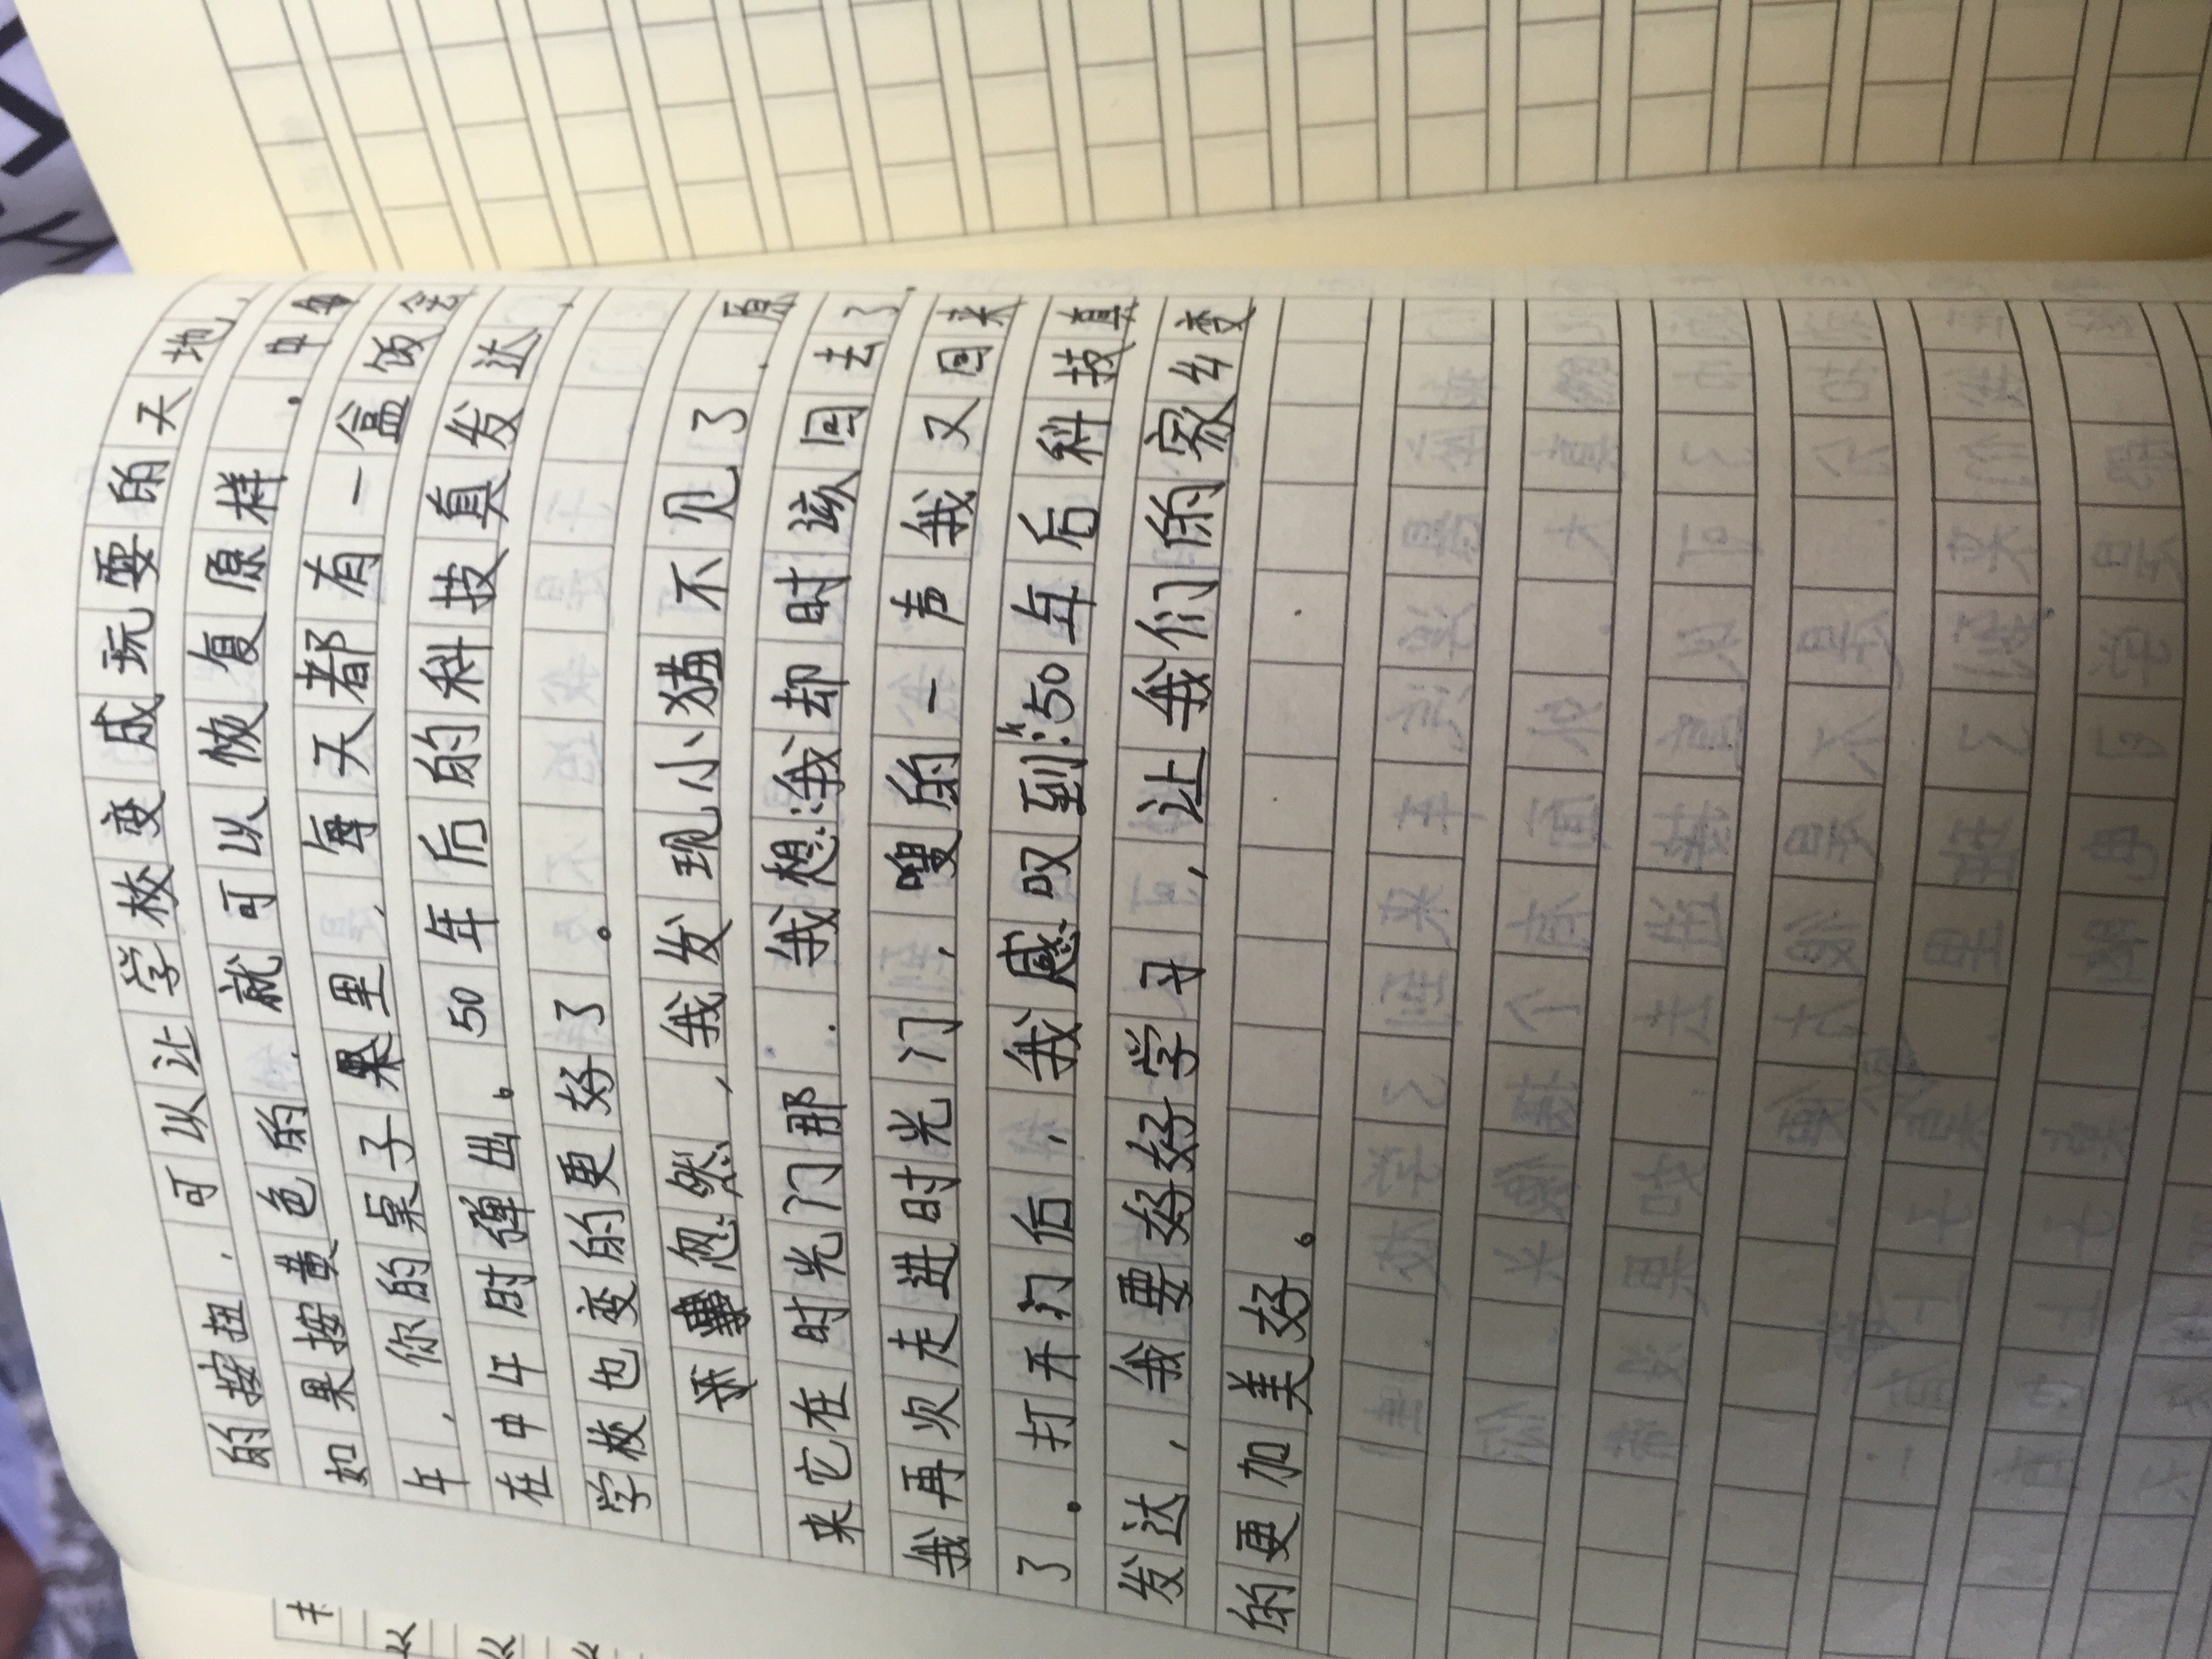 的按扭，可以让学校变成玩耍的天地，
如果按黄色的，就可以恢复原样。中午
年，你的桌子里，每天都有一盒饭会
在中午时弹出。50年后的科技真发达，
学校也变的更好了。
忽然，我发现小猫不见了，原
来它在时光门那，我想：我却时该回去了，
我再次走进时光门，嗖的一声我又回来
了。打开门后，我感叹到：“50年后科技真
发达，我要好好学习，让我们的家乡变
的更加美好。